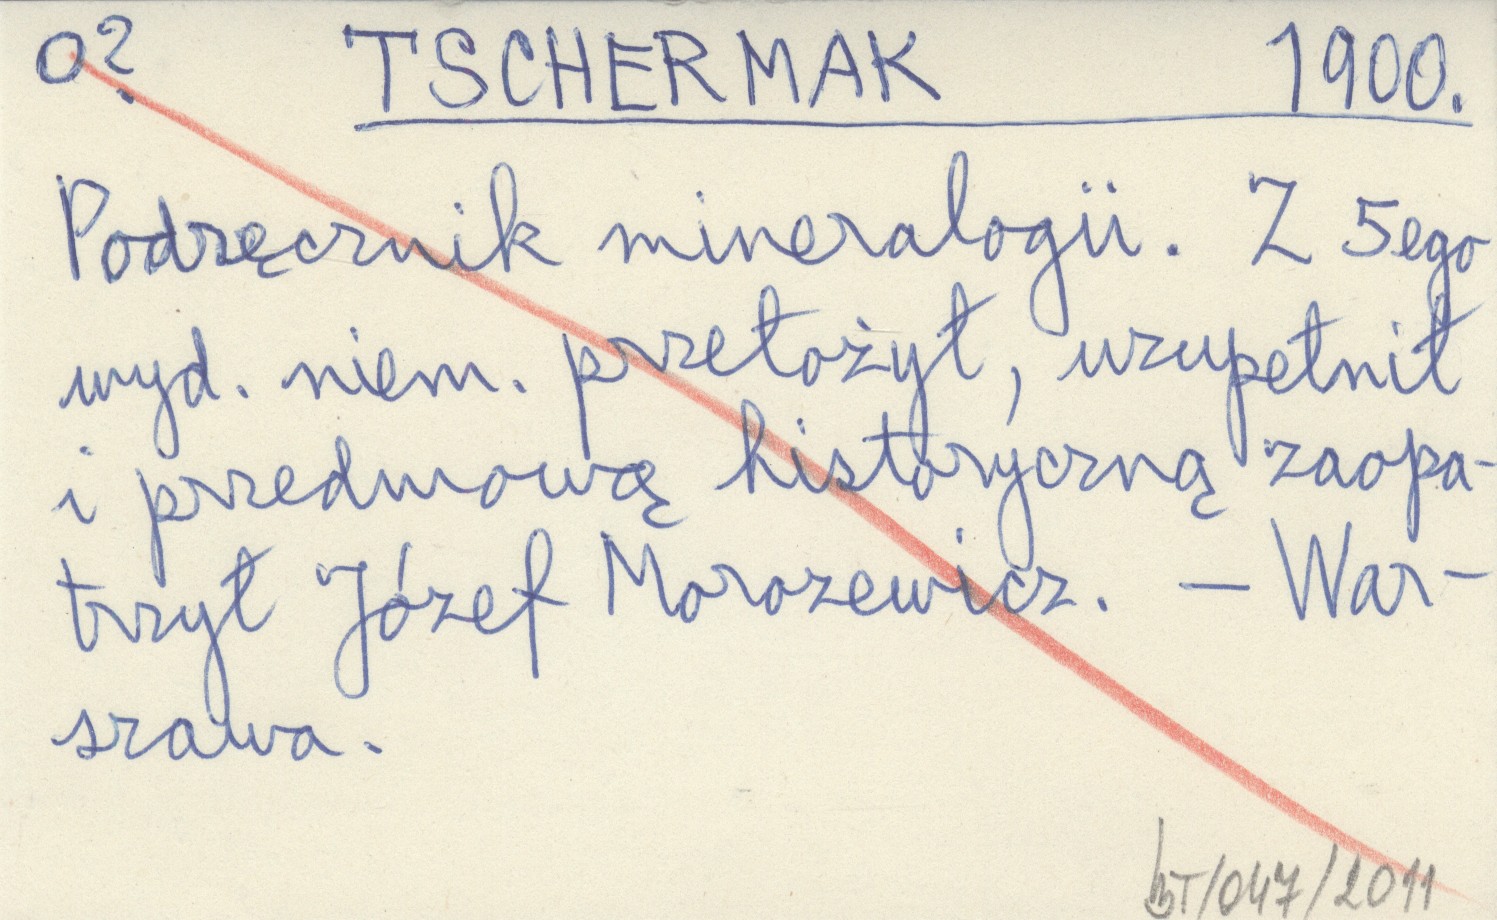 O? TSCHERMAK 1900.
Podręcznik mineralogii. Z 5ego
wyd. niem. przełożył, uzupełnił
i przedmową historyczną zaopa-
trzył Józef Morozewicz. – War-
szawa.
BT/047/2011